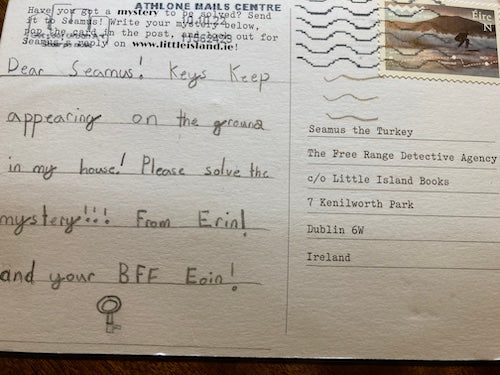 ATHLONE MAILS CENTRE
Have you got a mystery to be solved? Send
it to Seamus! Write your mystery below,
pop the card in the post, and look out for
Seamus's reply on www.littleisland.ie!
Dear Seamus! Keys Keep
appearing on the ground
in my house! Please solve the
mystery!!! From Erin!
and your BFF Eoin!
Éire
N
Seamus the Turkey
The Free Range Detective Agency
c/o Little Island Books
7 Kenilworth Park
Dublin 6W
Ireland